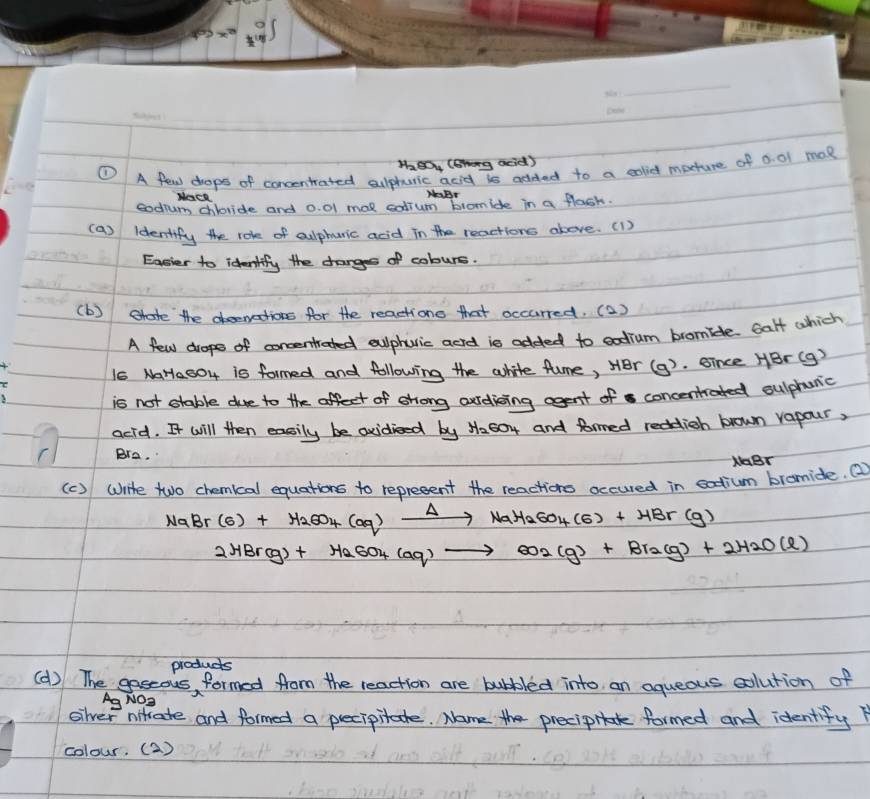 H2SO4 (strong acid)
① A few drops of concentrated sulphuric acid is added to a solid mixture of 0.01 mol
NaCl NaBr
sodium chloride and 0.01 mol sodium bromide in a flask.
(a) Identify the role of sulphuric acid in the reactions above. (1)
Easier to identify the changes of colours.
(b) State the observations for the reactions that occurred. (2)
A few drops of concentrated sulphuric acid is added to sodium bromide. Salt which
is NaHaSO4 is formed and following the white fume, HBr (g). Since HBr (g)
is not stable due to the affect of strong oxidising agent of concentrated sulphuric
acid. It will then easily be oxidised by H2SO4 and formed reddish brown vapour,
Br2.
NaBr
(c) Write two chemical equations to represent the reactions occured in sodium bromide. (2)
NaBr (s) + H2SO4 (aq) —Δ→ NaH2SO4 (s) + HBr (g)
2HBr(g) + H2SO4 (aq) ⟶ SO2 (g) + Br2(g) + 2H2O (l)
products
(d) The gaseous ^ formed from the reaction are bubbled into an aqueous solution of
AgNO3
silver nitrate and formed a precipitate. Name the precipitate formed and identify
colour. (2)